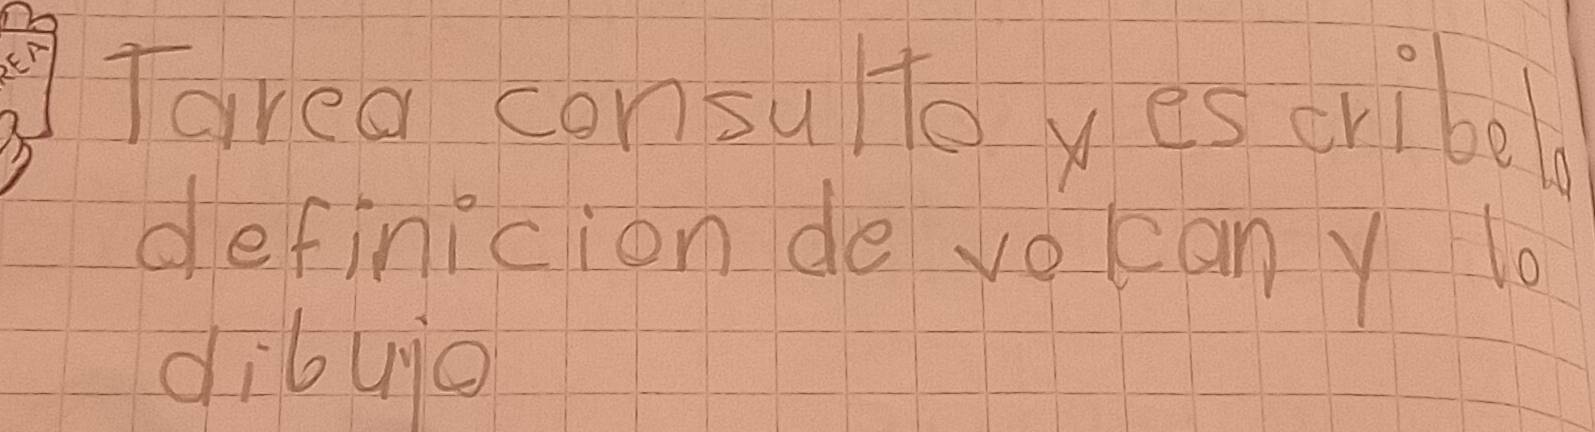 REA
Tarea consulto y escribe la
definicion de volcan y lo
dibujo